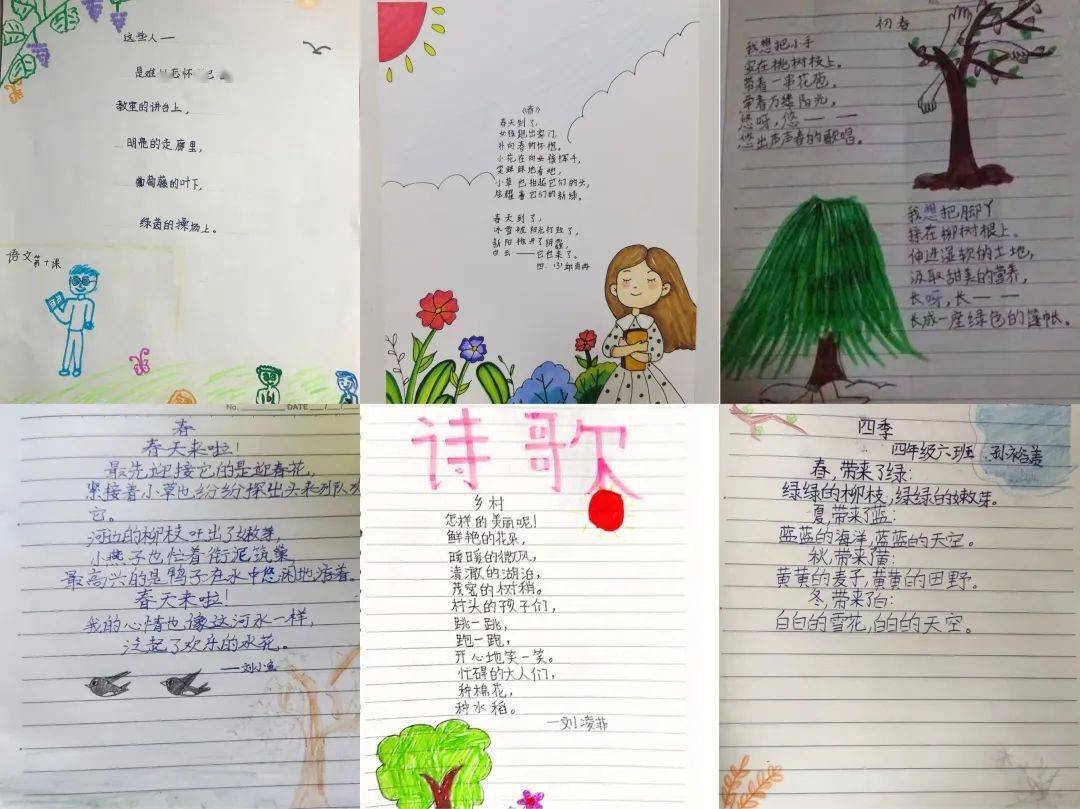 这些人——
是难以忘怀
教室的讲台上，
明亮的走廊里，
葡萄藤的叶下，
绿茵的操场上。
语文第7课
《春》
春天到了，
女孩跑出家门，
扑向春的怀抱。
小花在向女孩挥手，
笑眯眯地看她，
小草也抬起它们的头，
炫耀着它们的新绿。
春天到了，
冰雪被阳光打败了，
新阳
白云——它也来了。
初春
我想把小手
安在桃树枝上。
带着一串花苞，
牵着万缕阳光，
悠呀，悠——
悠出声声春的歌唱。
我想把脚丫
接在柳树根上。
伸进湿软的土地，
汲取甜美的营养，
长呀，长——
长成一座绿色的篷帐。
No. DATE / /
春
春天来啦！
最先迎接它的是迎春花，
紧接着小草也纷纷探出头来列队欢
它。
河边的柳枝吐出了嫩芽，
小燕子也忙着衔泥筑巢
最高兴的是鸭子在水中悠闲地游着。
春天来啦！
我的心情也像这河水一样，
泛起了欢乐的水花。
——刘小
诗歌
乡村
怎样的美丽呢！
鲜艳的花朵，
暖暖的微风，
清澈的湖泊，
茂密的树梢。
村头的孩子们，
跳一跳，
跑一跑，
开心地笑一笑。
忙碌的大人们，
种棉花，
种水稻。
—刘凌菲
四季
四年级六班 孙
春，带来了绿：
绿绿的柳枝，绿绿的嫩芽。
夏，带来了蓝：
蓝蓝的海洋，蓝蓝的天空。
秋，带来了黄：
黄黄的麦子，黄黄的田野。
冬，带来了白：
白白的雪花，白白的天空。